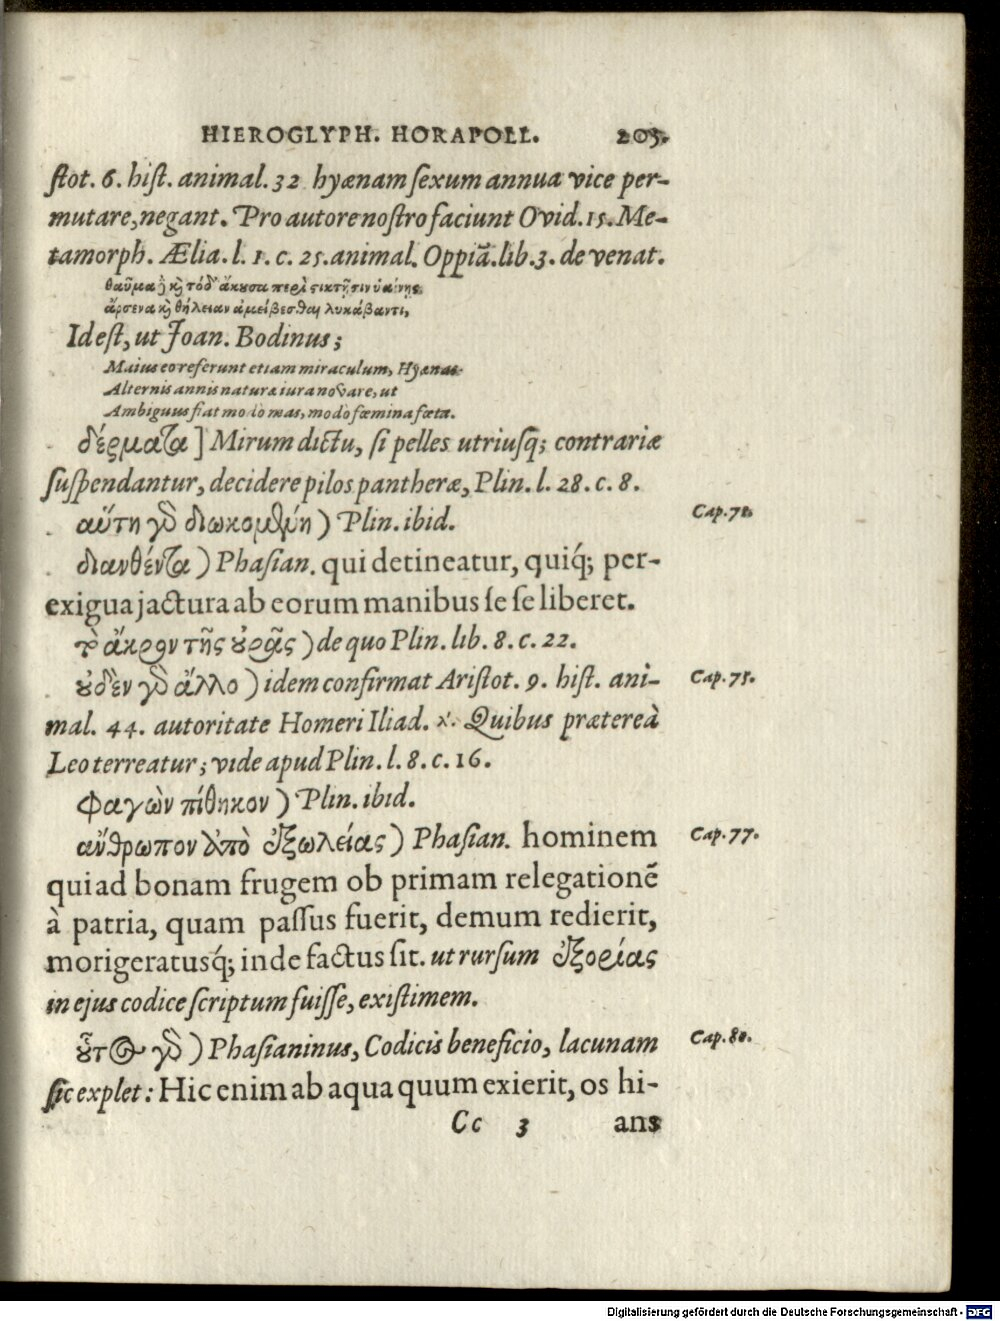 HIEROGLYPH. HORAPOLL. 205.
ſtot. 6. hiſt. animal. 32 hyænam ſexum annua vice per-
mutare, negant. Pro autore noſtro faciunt Ovid. 15. Me-
tamorph. Ælia. l. 1. c. 25. animal. Oppiã. lib. 3. de venat.
θαῦμα ἢ καὶ τόδ᾽ ἄκουσα περὶ στικτῇσιν ὑαίνῃς
ἄρσενα καὶ θήλειαν ἀμείβεσθαι λυκάβαντι,
Id eſt, ut Joan. Bodinus;
Maius eo referunt etiam miraculum, Hyænas
Alternis annis naturæ iura novare, ut
Ambiguus fiat modo mas, modò fœmina fœta.
δέρματα ] Mirum dictu, ſi pelles utriuſq; contrariæ
ſuſpendantur, decidere pilos pantheræ, Plin. l. 28. c. 8.
αὕτη γὸ διωκομένη ) Plin. ibid. Cap. 72.
διανθέντα ) Phaſian. qui detineatur, quiq́; per-
exigua jactura ab eorum manibus ſe ſe liberet.
τὸ ἄκρον τῆς ουρᾶς ) de quo Plin. lib. 8. c. 22.
ουδὲν γὸ ἄλλο ) idem confirmat Ariſtot. 9. hiſt. ani- Cap. 75.
mal. 44. autoritate Homeri Iliad. χ. Quibus prætereà
Leo terreatur; vide apud Plin. l. 8. c. 16.
φαγὼν πίθηκον ) Plin. ibid.
ἄνθρωπον ἀπὸ ἐξωλείας ) Phaſian. hominem Cap. 77.
qui ad bonam frugem ob primam relegationẽ
à patria, quam paſſus fuerit, demum redierit,
morigeratusq́; inde factus ſit. ut rurſum ἐξορίας
in ejus codice ſcriptum fuiſſe, exiſtimem.
οὗτος γὸ ) Phaſianinus, Codicis beneficio, lacunam Cap. 80.
ſic explet: Hic enim ab aqua quum exierit, os hi-
Cc 3 ans
Digitalisierung gefördert durch die Deutsche Forschungsgemeinschaft - DFG